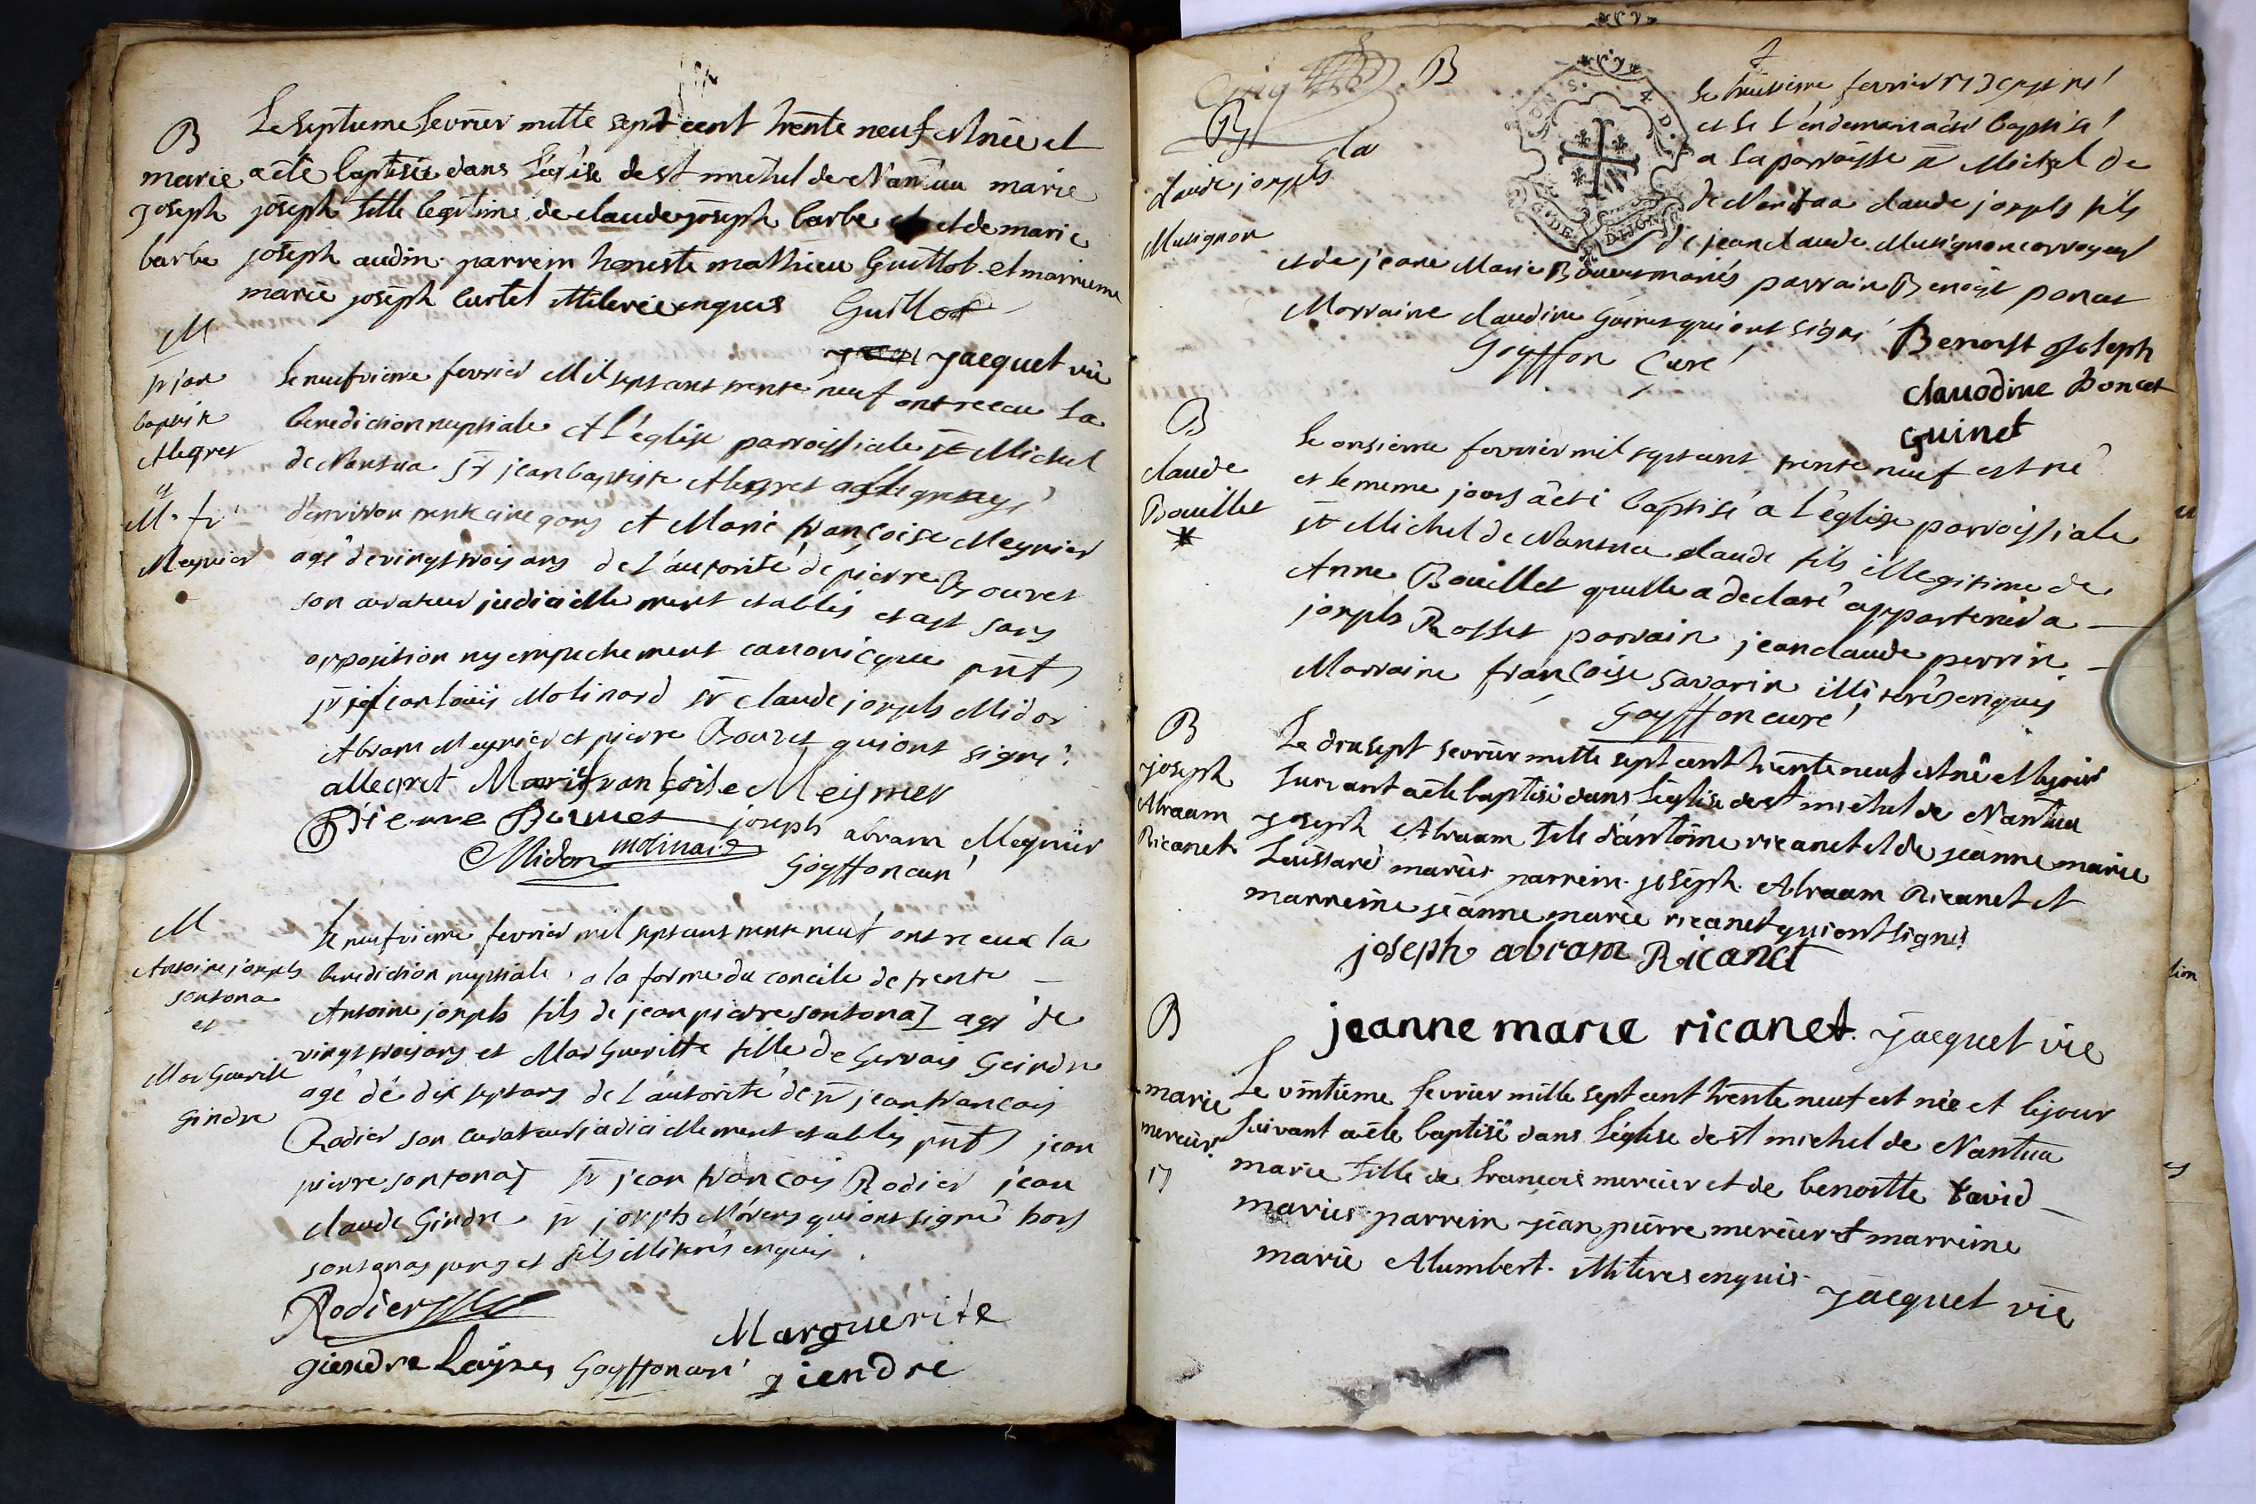 B
marie
joseph
barbe
Le septieme fevrier mille sept cent trente neuf est née et
a été baptisée dans l'église de st michel de Nantua marie
joseph fille legitime de claude joseph barbe et de marie
joseph audin parrein honeste mathieu Guillot et marreine
marie joseph curtet illiterée enquis Guillot
jacquet vic
M
sr jean
baptiste
Alegret
et
M. fr
Meynier
le neufvieme fevrier Mil sept cent trente neuf ont receu la
benediction nuptiale A l'eglise parroissiale st Michel
de Nantua sr jean baptiste Alegret
d'environ trente cinq ans et Marie françoise Meynier
agé de vingt trois ans de l'autorité de pierre Bouret
son curateur judiciellement etablis et ast sans
opposition ny empechement canonicque pnts
sr jean louis Molinard sr claude joseph Midor
Abram Meynier et pierre Bouret qui ont signé
allegret Marie françoise Meynier
Pierre Bouret joseph abram Meynier
Midor molinard Goyffon curé
M
Antoine joseph
sontona
et
Marguerite
Gindre
le neufvieme fevrier mil sept cent trente neuf ont receu la
benediction nuptiale a la forme du concile de trente
Antoine joseph fils de jean pierre sontonaz agé de
vingt trois ans et Marguerite fille de Gervais Geindre
agé de dix sept ans de l'autorité de sr jean françois
Rodier son curateur judiciellement etablis pnts jean
pierre sontonaz sr jean françois Rodier jean
claude Gindre sr joseph qui ont signé hors
sontonas pere et fils illiterés enquis
Rodier
Marguerite
giendre Goyffon curé giendre
Cinq
B
B
claude joseph
Musignon
le huitieme fevrier 1739 est né
et le l'endemain a eté baptisé
a la parroisse st Michel de
de Nantua claude joseph fils
de jean claude Musignon corroyeur
et de jeane Marie Bouver mariés parrain Benoist poncet
Marraine claudine Guinet qui ont signé Benoist joseph
Goyffon curé claudine Poncet
Guinet
B
claude
Bouillet
*
le onsieme fevrier mil sept cent trente neuf est né
et le meme jours a eté baptisé a l'église parroissiale
st Michel de Nantua claude fils illegitime de
Anne Bouillet qu'elle a declaré appartenir a
joseph Rosset parrain jean claude perrin
Marraine françoise savarin illiterés enquis
Goyffon curé
B
joseph
Abraam
Ricanet
Le dixsept fevrier mille sept cent trente neuf est né et le jour
suivant a été baptisé dans l'église de st michel de Nantua
joseph Abraam fils d'antoine ricanet et de jeanne marie
mariés parrein joseph Abraam Ricanet et
marreine jeanne marie ricanet qui ont signés
joseph abram Ricanet
jeanne marie ricanet. jacquet vic
B
marie
mercier
17
Le vintieme fevrier mille sept cent trente neuf est née et le jour
suivant a été baptisé dans l'église de st michel de Nantua
marie fille de françois mercier et de benoitte david
mariés parrein jean pierre mercier et marreine
marie Alumbert. illiteres enquis
jacquet vic